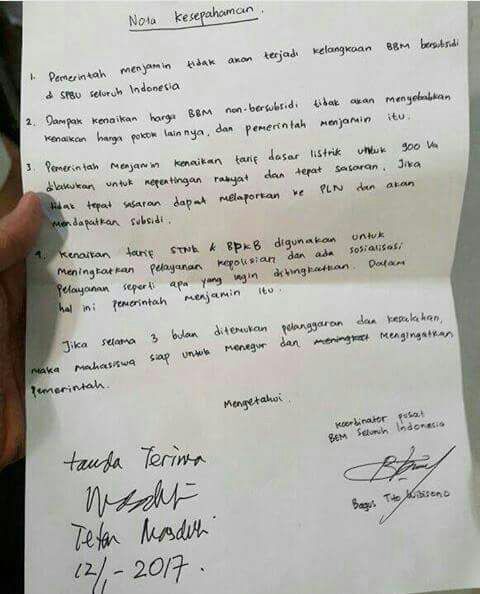 Nota Kesepahaman.
1. Pemerintah menjamin tidak akan terjadi kelangkaan BBM bersubsidi
di SPBU seluruh Indonesia
2. Dampak kenaikan harga BBM non-bersubsidi tidak akan menyebabkan
kenaikan harga pokok lainnya, dan pemerintah menjamin itu.
3. Pemerintah menjamin kenaikan tarif dasar listrik untuk 900 Va
dilakukan untuk kepentingan rakyat dan tepat sasaran. Jika
tidak tepat sasaran dapat melaporkan ke PLN dan akan
mendapatkan subsidi.
4. Kenaikan tarif STNK & BPKB digunakan untuk
meningkatkan pelayanan kepolisian dan ada sosialisasi
pelayanan seperti apa yang ingin ditingkatkan. Dalam
hal ini pemerintah menjamin itu.
Jika selama 3 bulan ditemukan pelanggaran dan kesalahan,
maka Mahasiswa siap untuk menegur dan mengingatkan
pemerintah.
Mengetahui.
Koordinator pusat
BEM Seluruh Indonesia
Bagus Tito Wibisono
tanda Terima
Teten Masduki
12/1-2017.